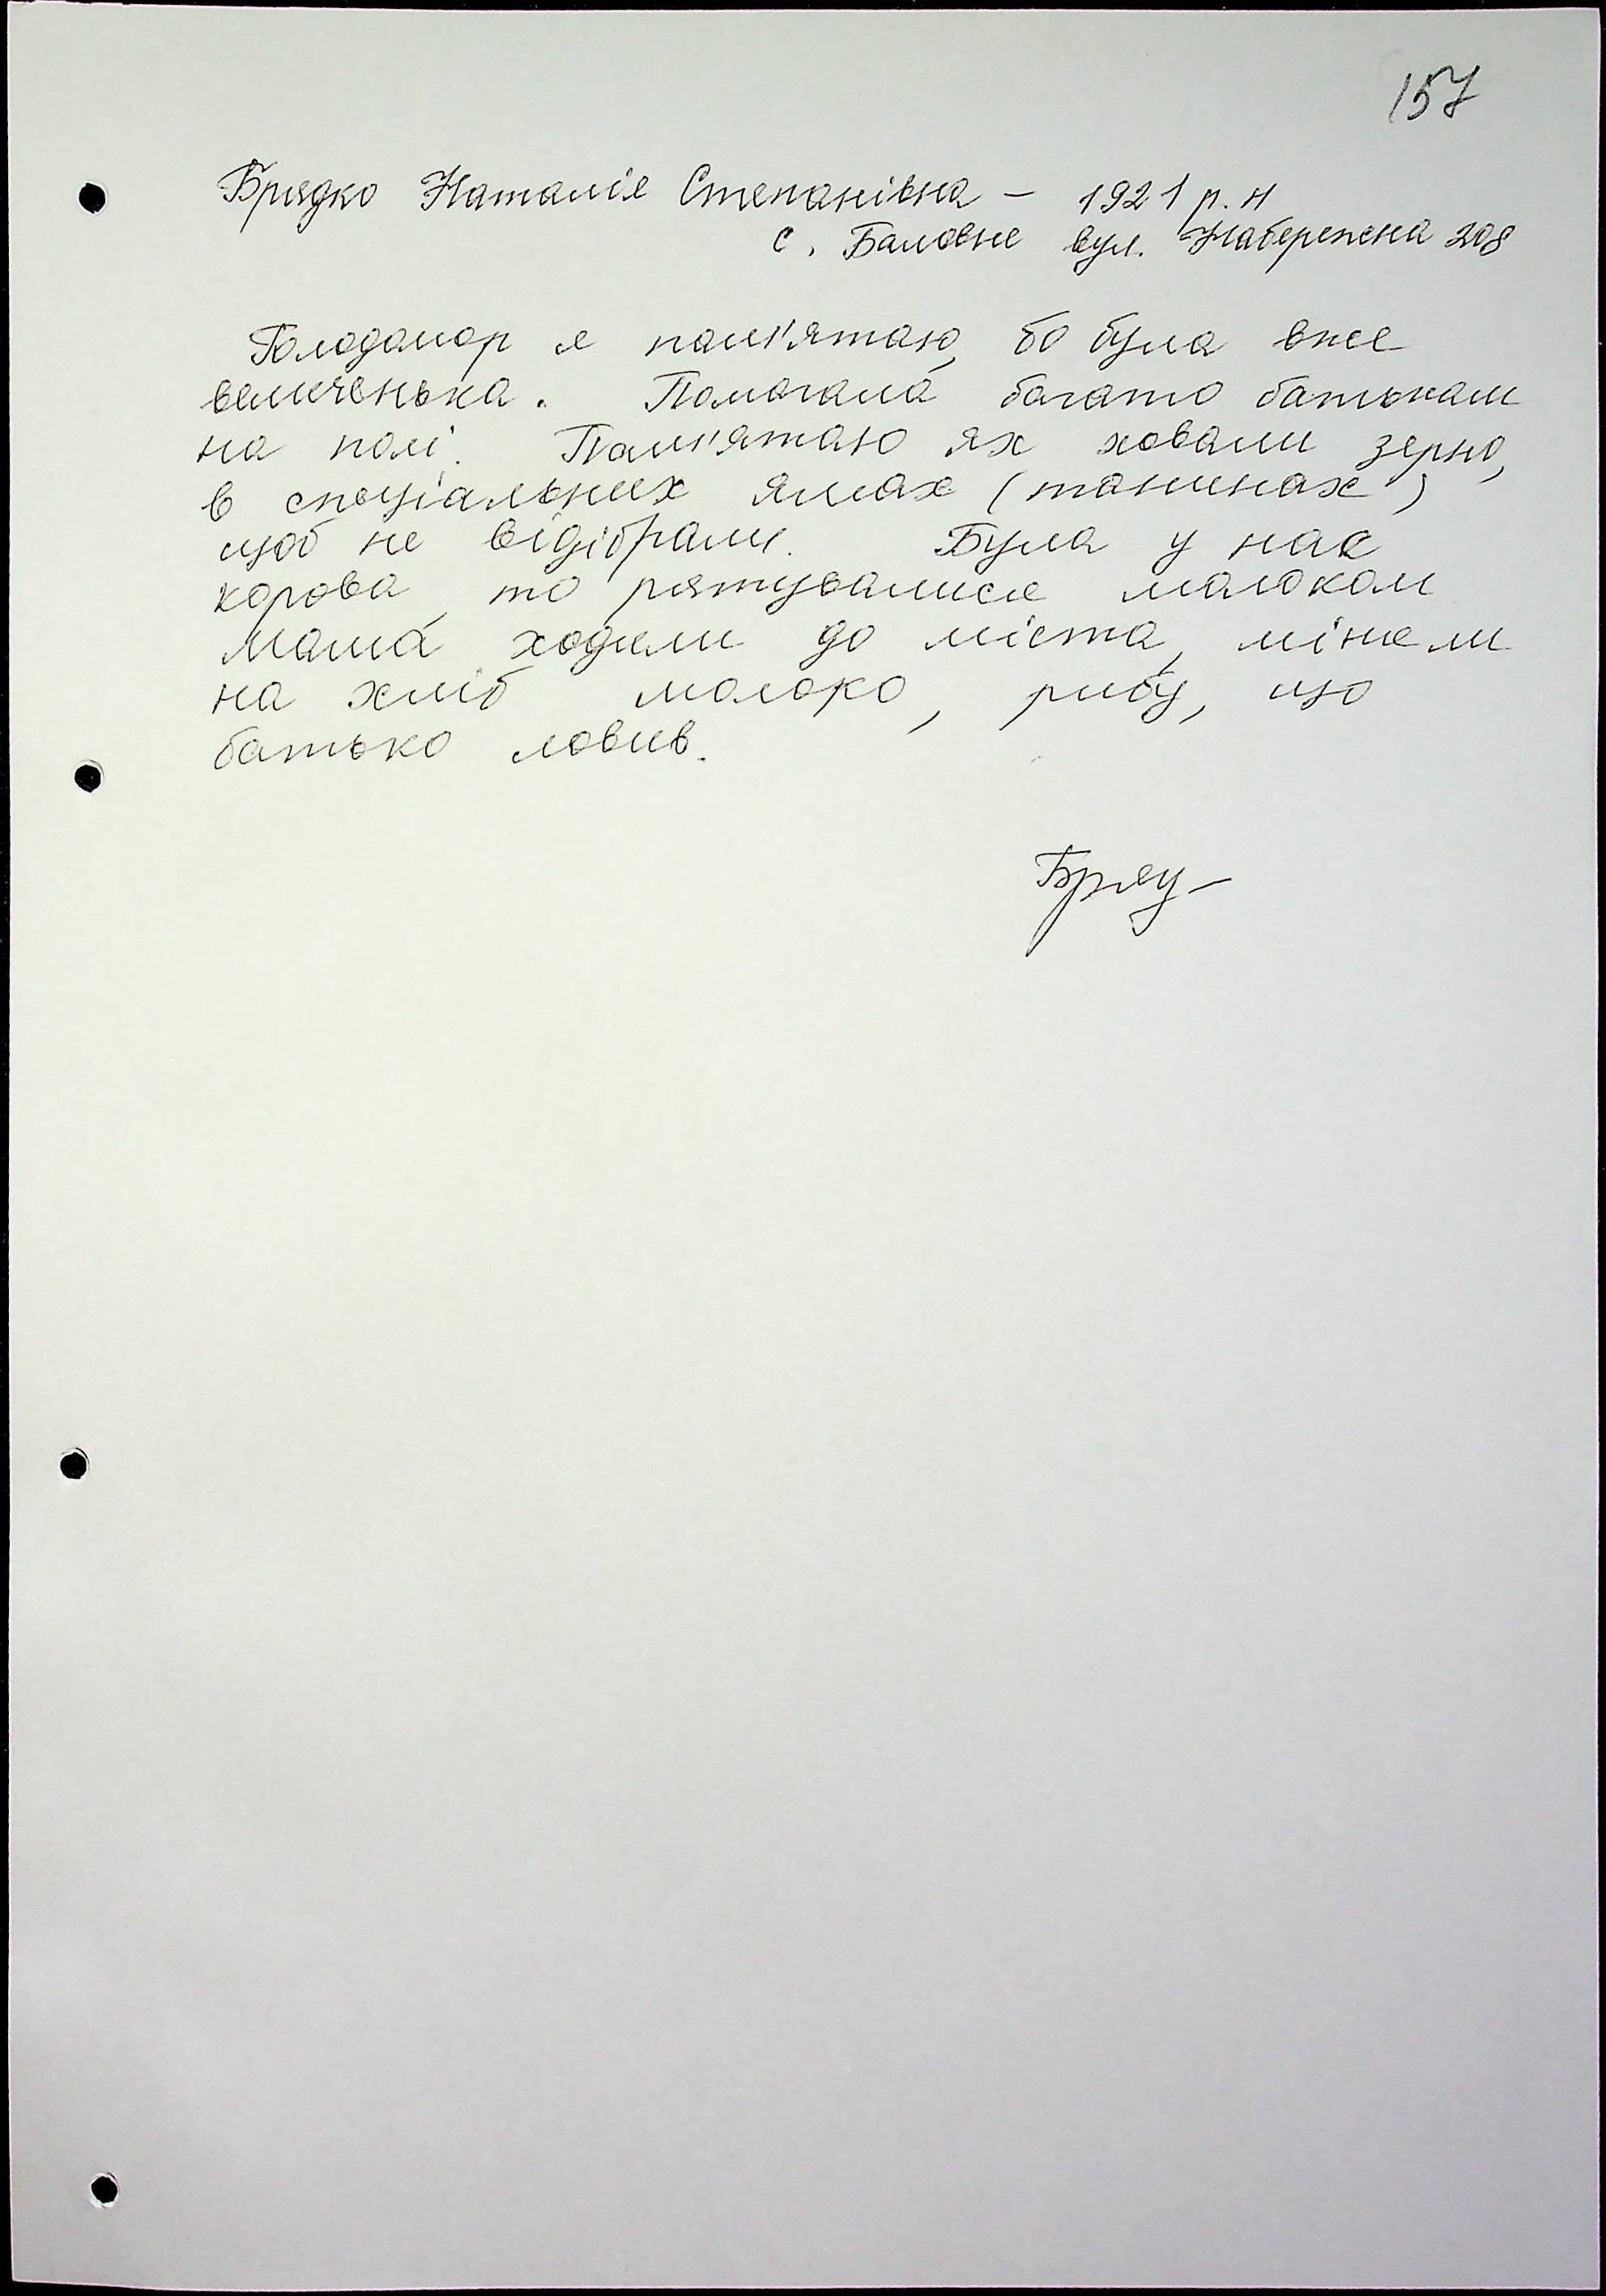 157
Брядко Наталія Степанівна – 1921 р.н
с. Баловне вул. Набережна 208
Голодомор я пам'ятаю, бо була вже
величенька. Помагала багато батькам
на полі. Пам'ятаю як ховали зерно,
в спеціальних ямах (тайниках)
щоб не відібрали. Була у нас
корова, то рятувалися молоком
Мама ходили до міста, міняли
на хліб молоко, рибу, що
батько ловив.